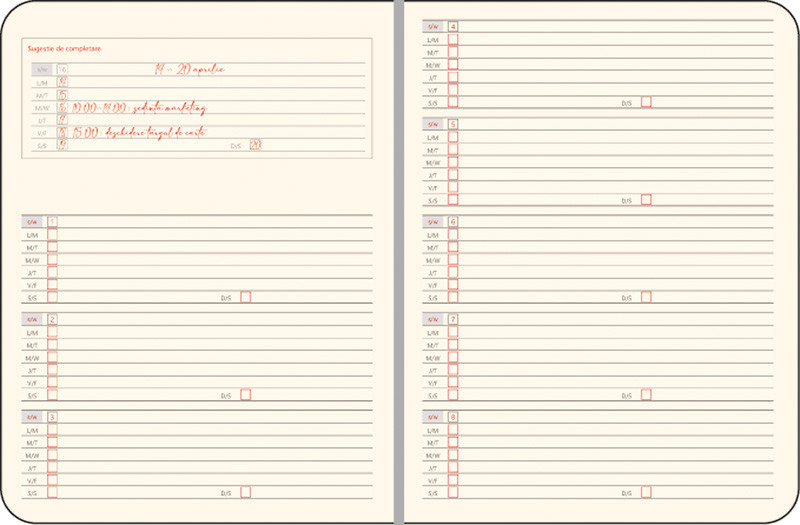 Sugestie de completare
S/W 16 14 – 20 aprilie
L/M 14
M/T 15
M/W 16 10.00-14.00: sedinta marketing
J/T 17
V/F 18 15.00: deschidere targul de carte
S/S 19 D/S 20
S/W 1
L/M
M/T
M/W
J/T
V/F
S/S D/S
S/W 2
L/M
M/T
M/W
J/T
V/F
S/S D/S
S/W 3
L/M
M/T
M/W
J/T
V/F
S/S D/S
S/W 4
L/M
M/T
M/W
J/T
V/F
S/S D/S
S/W 5
L/M
M/T
M/W
J/T
V/F
S/S D/S
S/W 6
L/M
M/T
M/W
J/T
V/F
S/S D/S
S/W 7
L/M
M/T
M/W
J/T
V/F
S/S D/S
S/W 8
L/M
M/T
M/W
J/T
V/F
S/S D/S